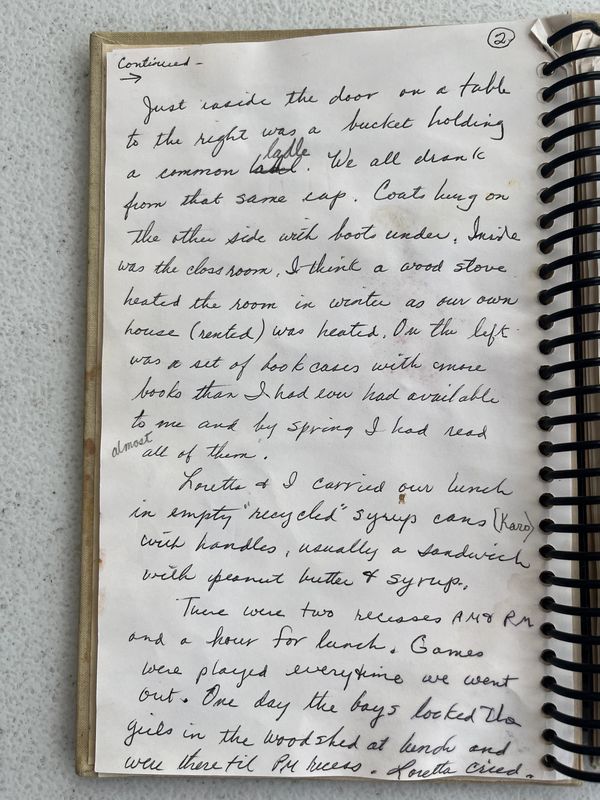 2
Continued -
→
Just inside the door on a table
to the right was a bucket holding
a common ladle. We all drank
from that same cup. Coats hung on
the other side with boots under. Inside
was the classroom. I think a wood stove
heated the room in winter as our own
house (rented) was heated. On the left
was a set of book cases with more
books than I had ever had available
to me and by spring I had read
almost all of them.
Loretta & I carried our lunch
in empty "recycled" syrup cans (Karo)
with handles, usually a sandwich
with peanut butter & syrup.
There were two recesses AM & PM
and a hour for lunch. Games
were played everytime we went
out. One day the boys locked the
girls in the woodshed at lunch and
were there til PM recess. Loretta cried.